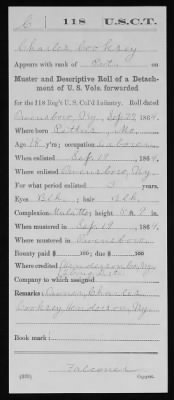 C | 118 | U.S.C.T.
Charles Cooksey
Appears with rank of Pvt. on
Muster and Descriptive Roll of a Detach-
ment of U. S. Vols. forwarded
for the 118 Reg't U. S. Col'd Infantry. Roll dated
Owensboro, Ky., Sep. 22, 1864.
Where born , Mo.
Age 18 y'rs; occupation Laborer
When enlisted Sep. 19, 1864.
Where enlisted Owensboro, Ky.
For what period enlisted 3 years.
Eyes Blk.; hair Blk.
Complexion Mulatto; height 5 ft. 9 in.
When mustered in Sep. 19, 1864.
Where mustered in Owensboro
Bounty paid $ 100; due $ 100
Where credited Henderson Co., Ky.
Company to which assigned
Remarks: Owner, Charles
Cooksey, Henderson, Ky.
Book mark:
Falconer
Copyist.